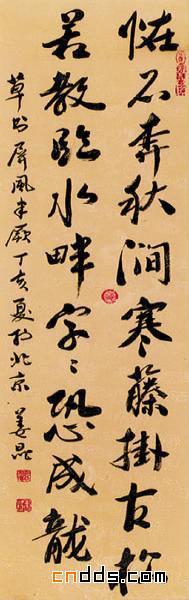 怪石奔秋涧寒藤掛古松
若教临水畔字〻恐成龙
草书屏风半厥丁亥夏於北京 姜昆
cndds.com